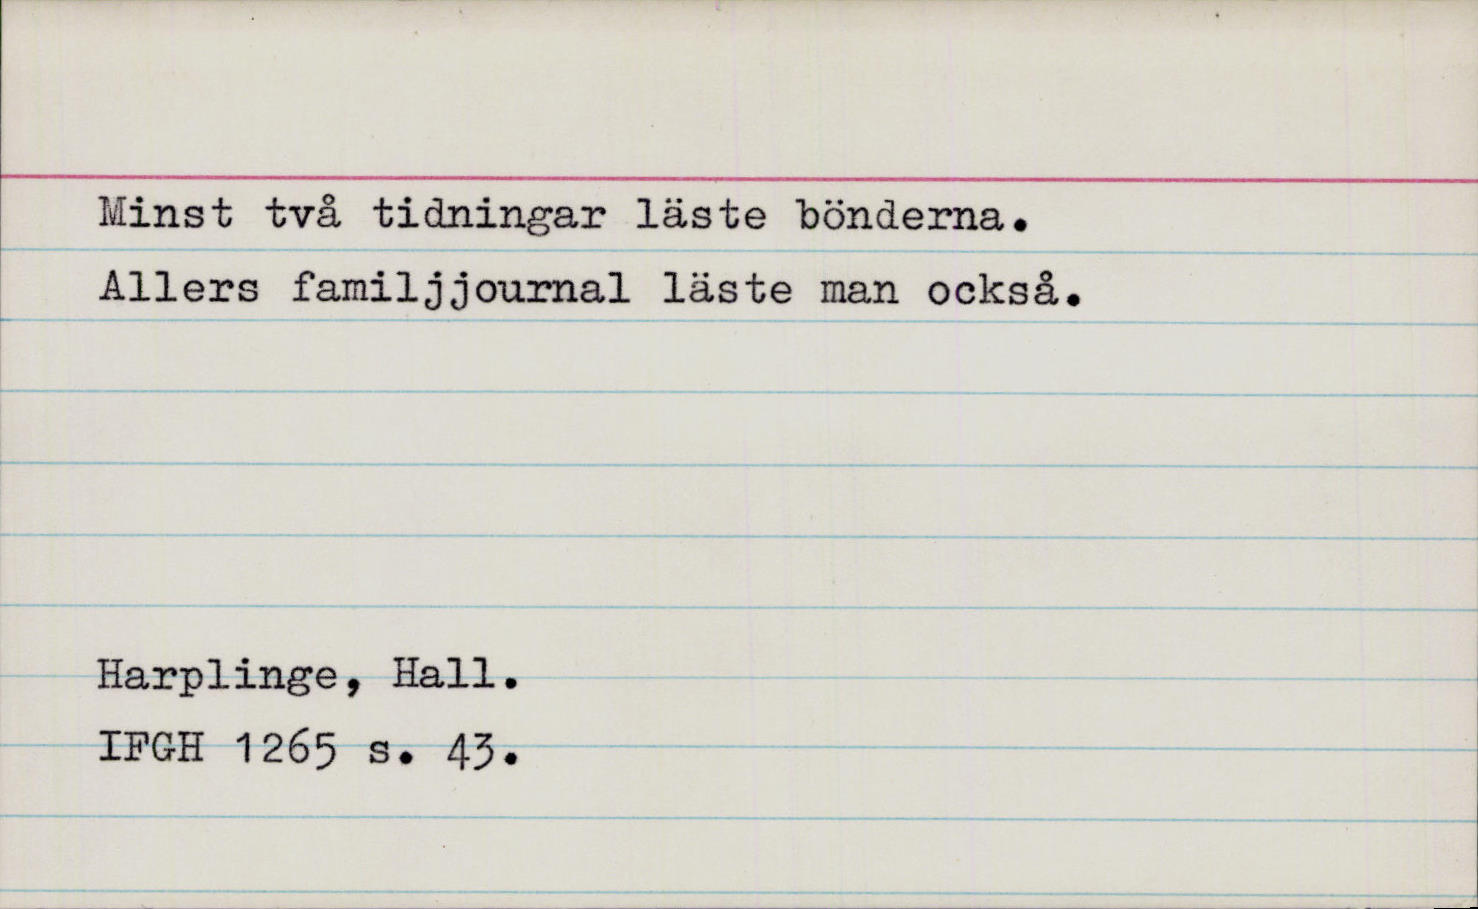 Minst två tidningar läste bönderna.
Allers familjjournal läste man också.
Harplinge, Hall.
IFGH 1265 s. 43.